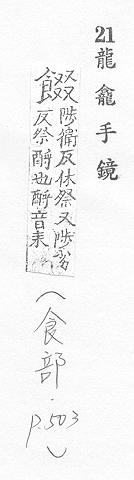 21龍龕手鏡
餟陟衛反㑒祭又陟劣
反祭酹也酹音耒
(食部.
P.503)